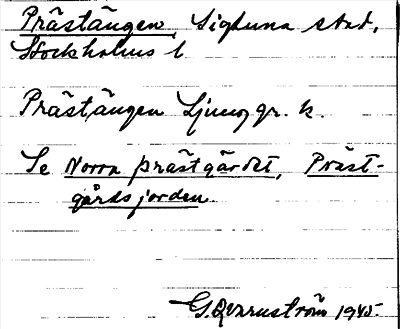 Prästängen, Sigtuna stad,
Stockholms l
Prästängen Ljunggr. k.
Se Norra prästgärdet, Präst-
gårdsjorden.
G. Qvarnström 1945.